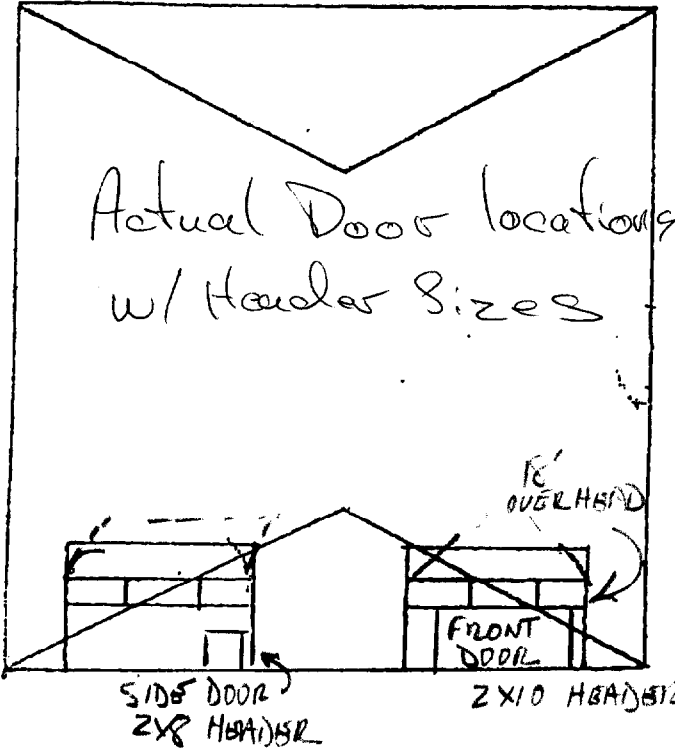 Actual Door locations
w/ Header Sizes
OVERHEAD
FRONT
DOOR
SIDE DOOR
2X8 HEADER
2X10 HEADER